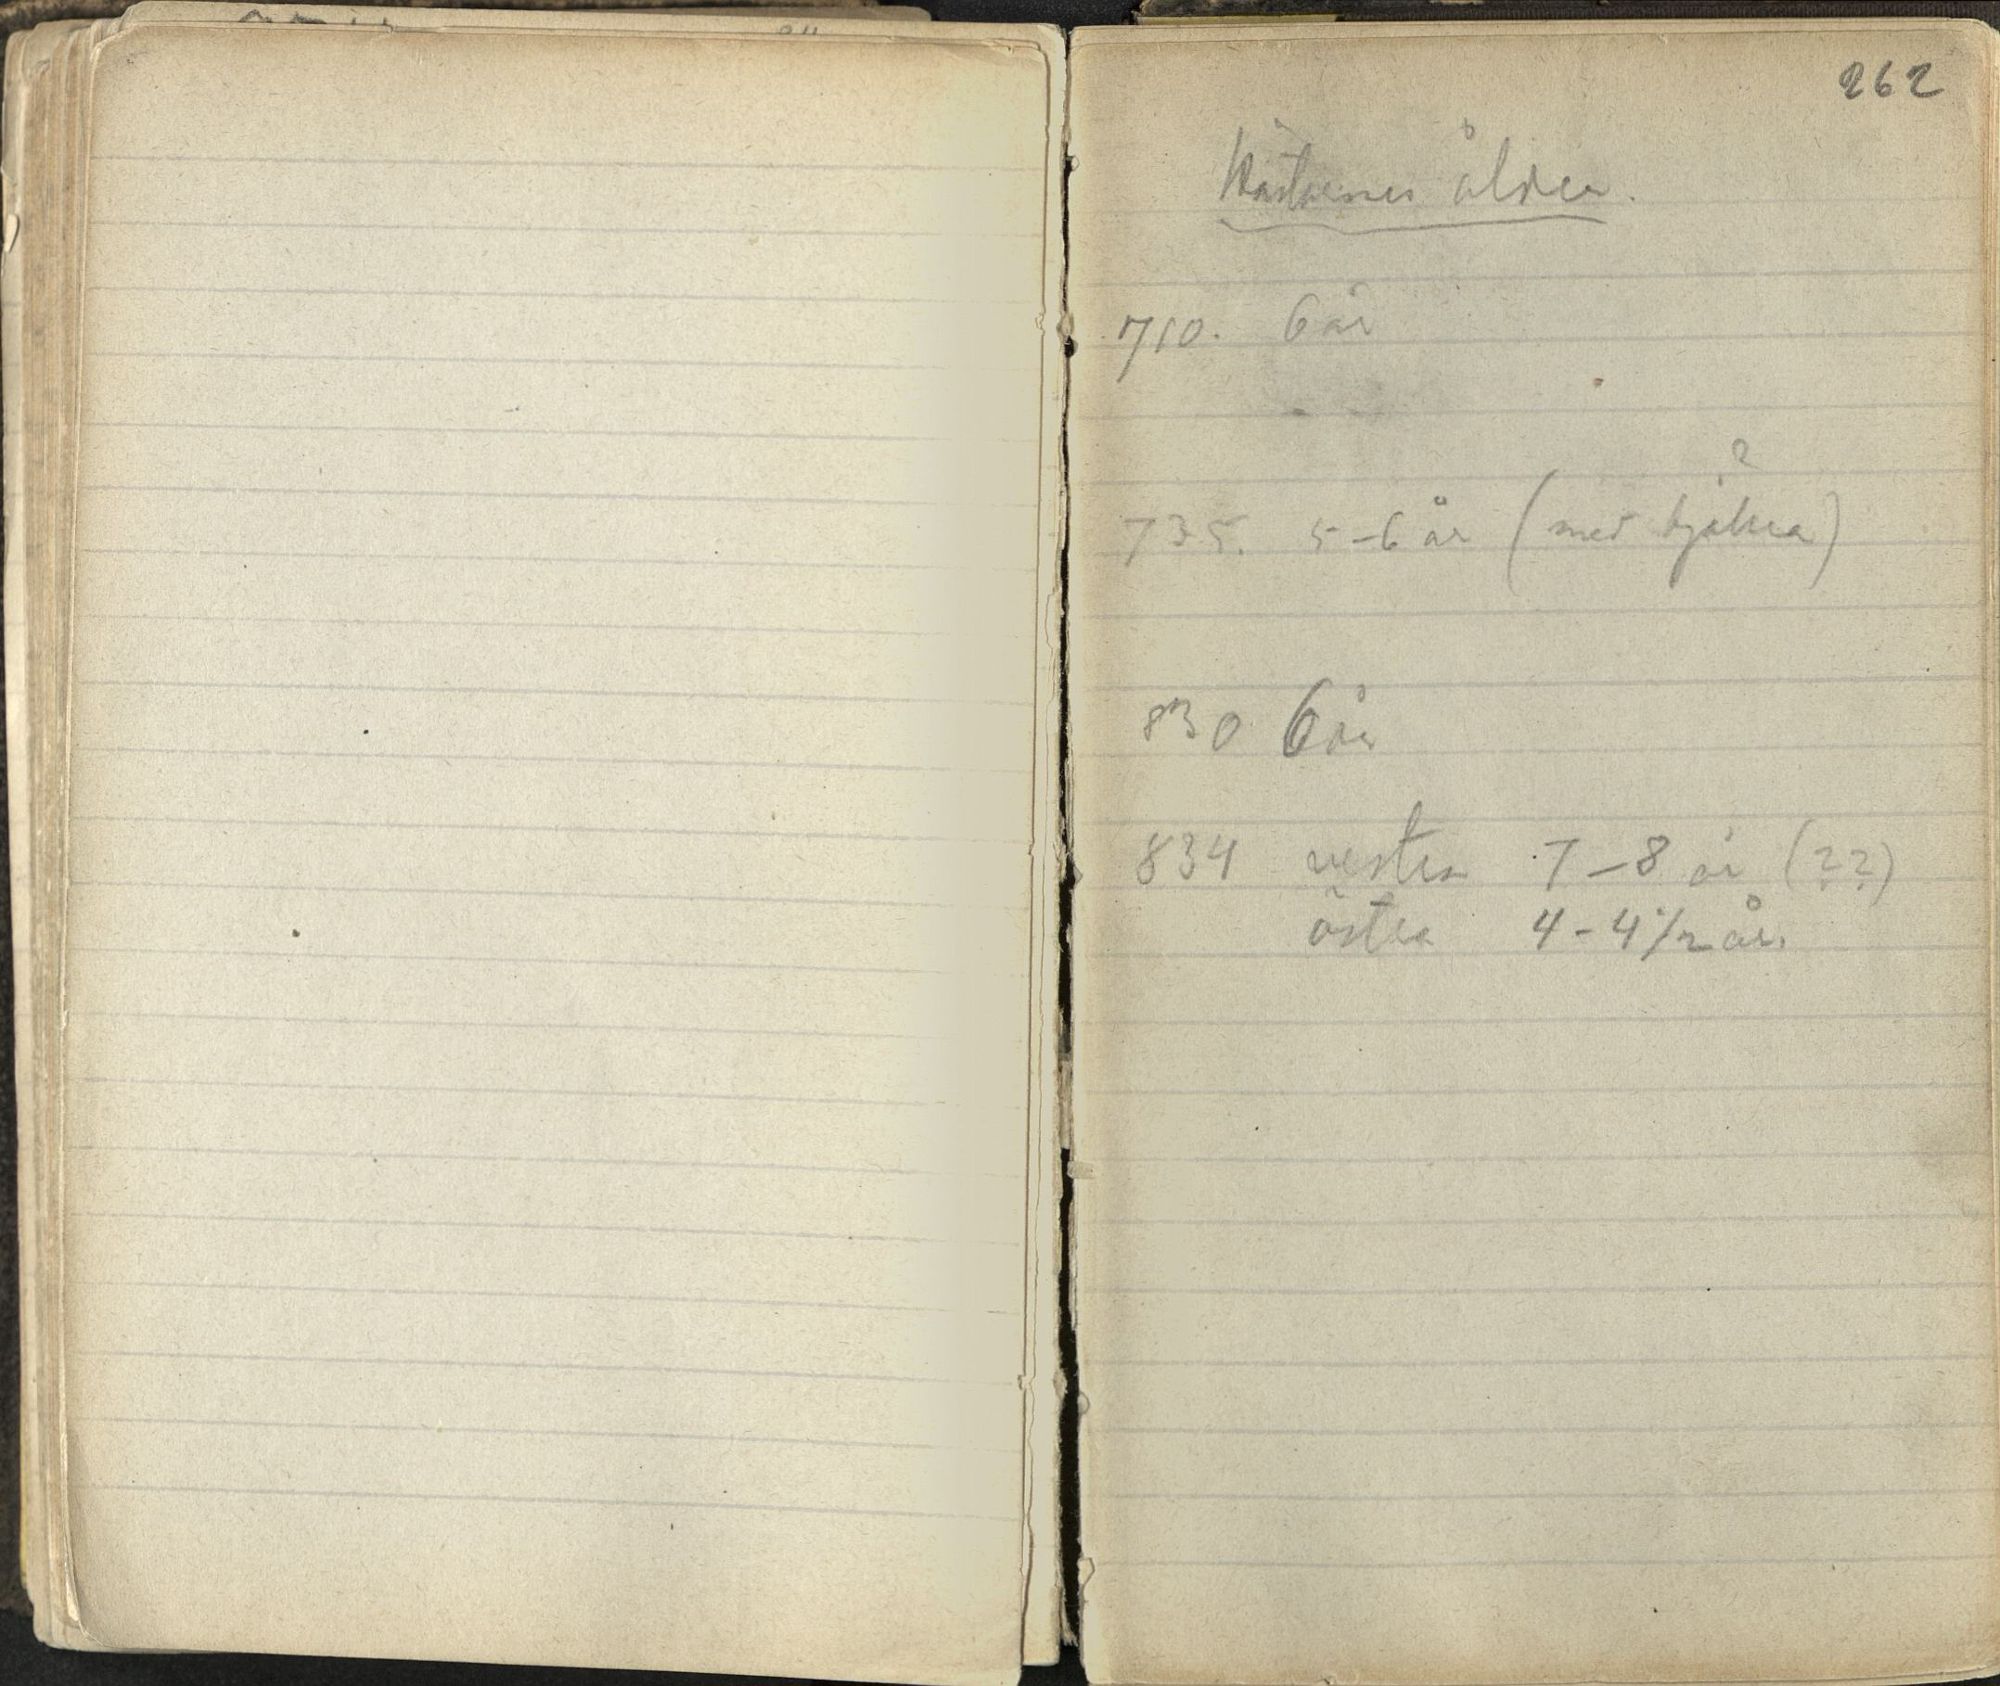 262
Hästarnes ålder.
710. 6 år
?
735. 5-6 år (med bjällra)
830 6 år
834 vestra 7-8 år (??)
östra 4-4 1/2 år.